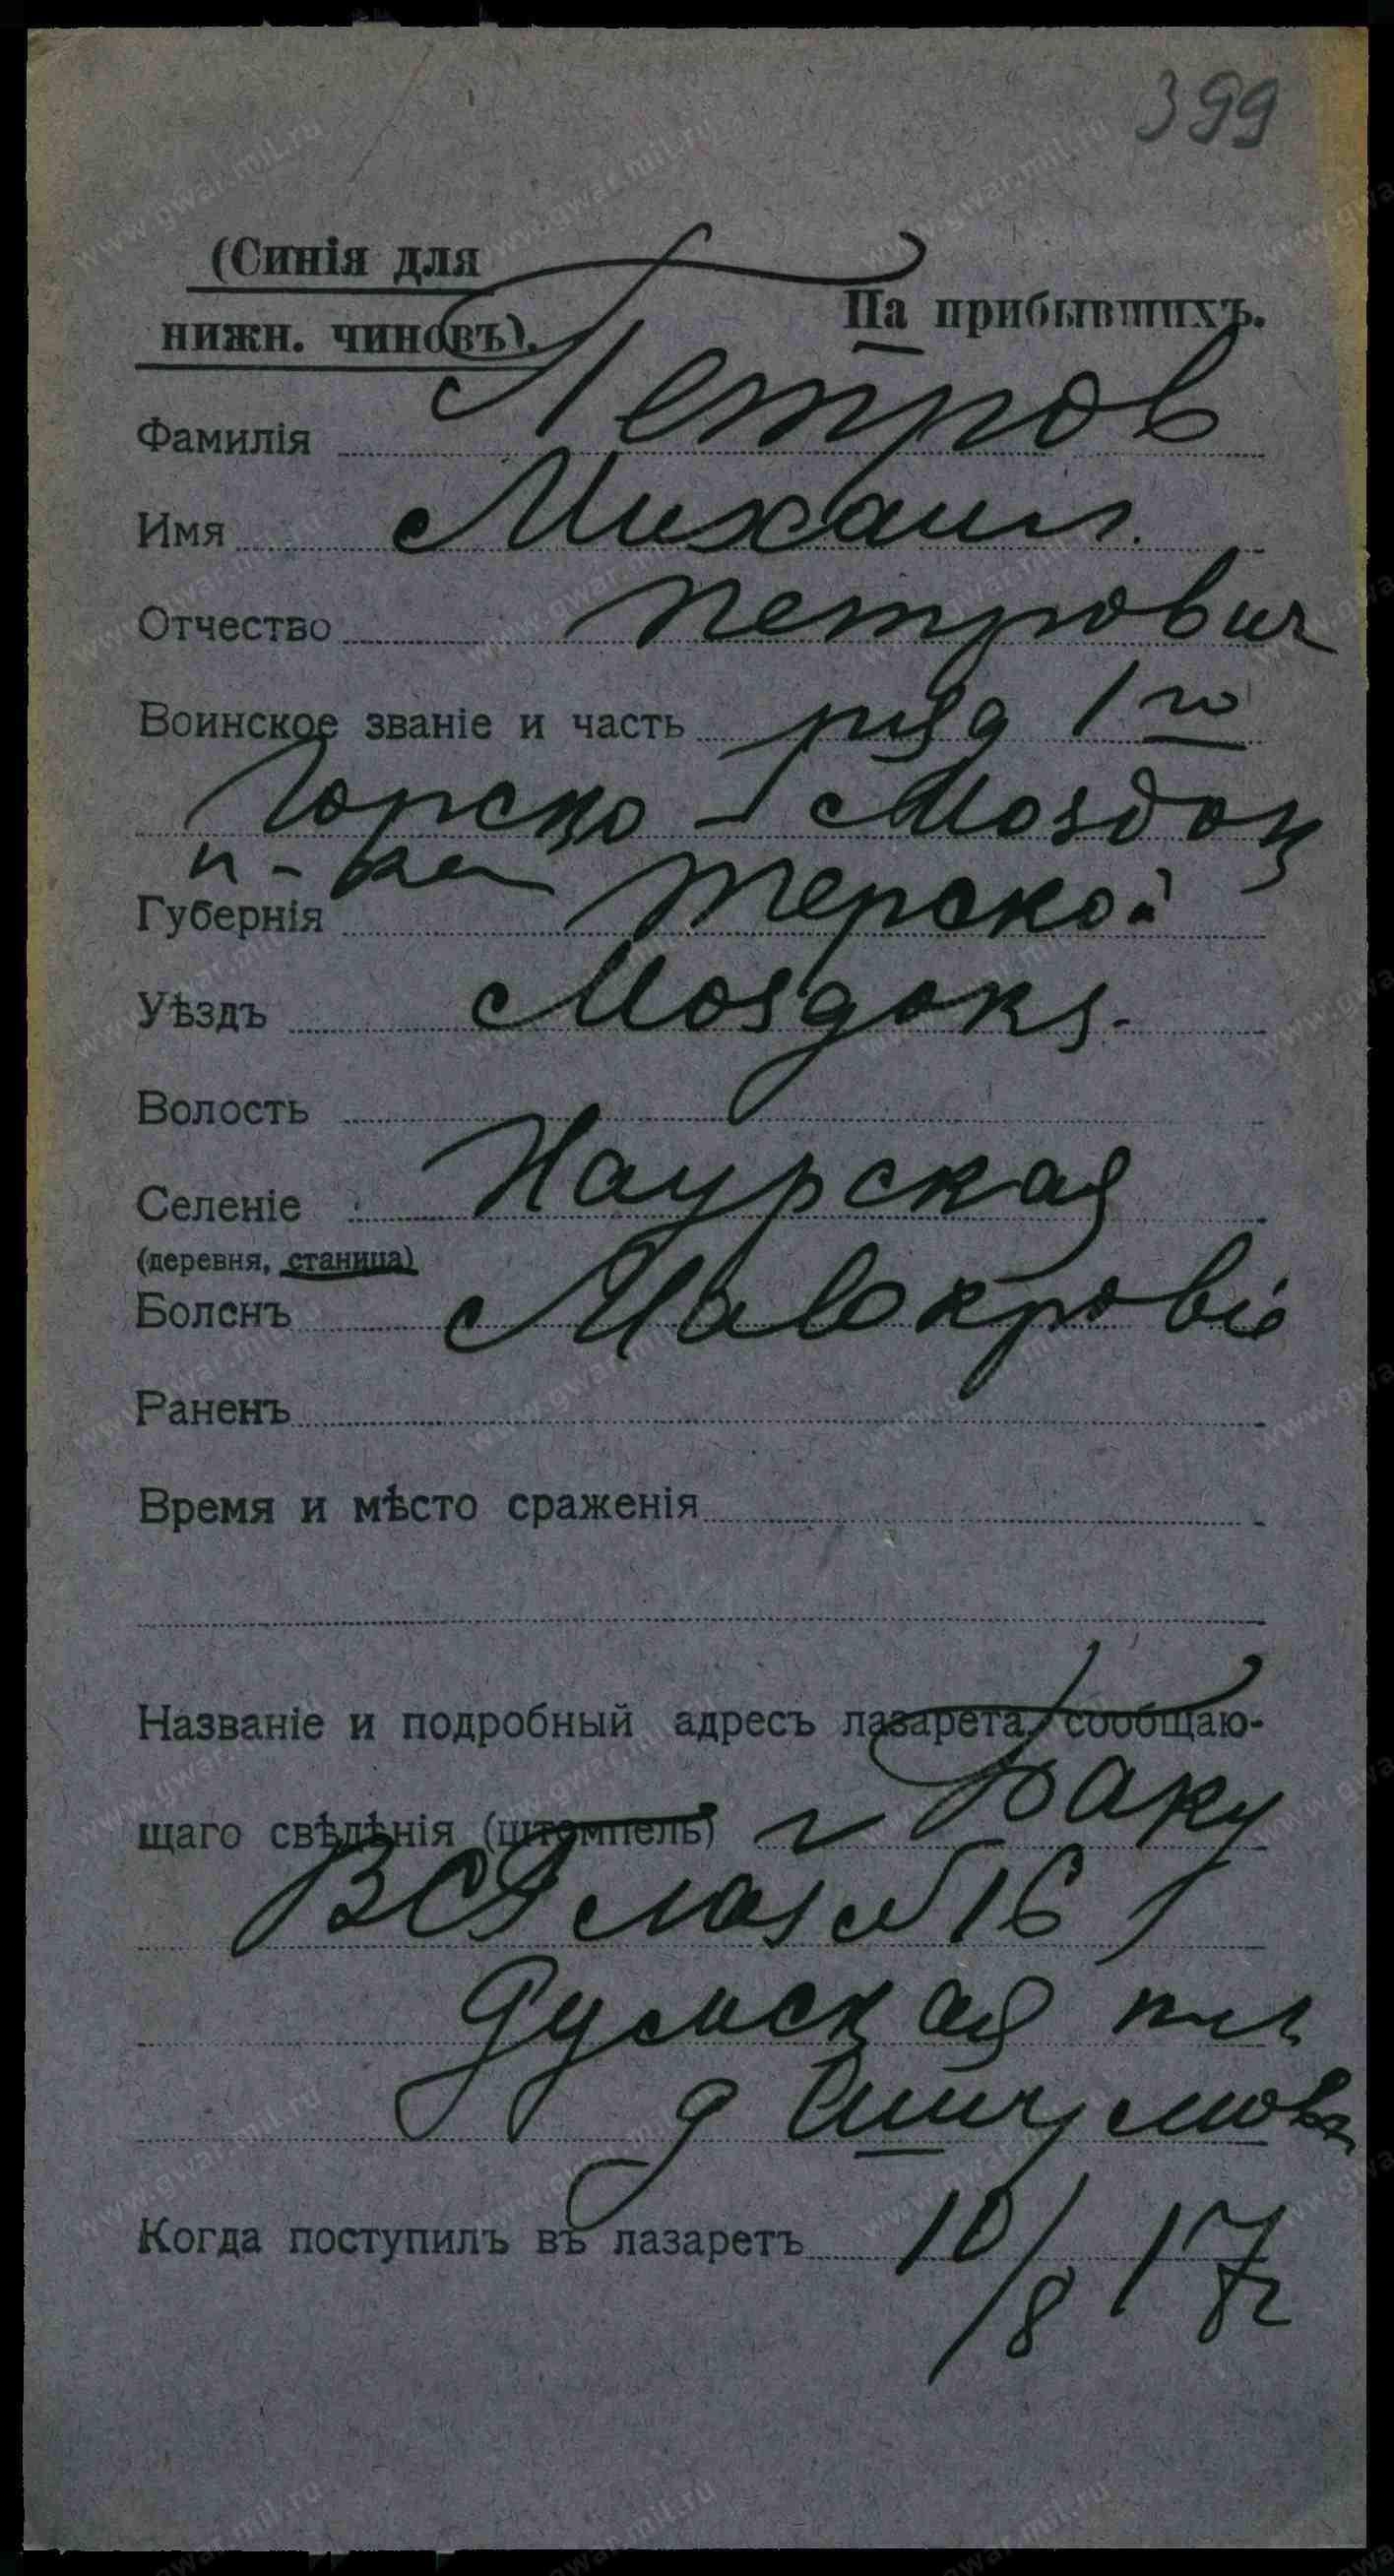 399
(Синія для
нижн. чиновъ).
На прибывшихъ.
Фамилія Петров
Имя Михаил.
Отчество Петрович
Воинское званіе и часть ряд 1го
Горско-Моздок
п-ка
Губернія Терской
Уѣздъ Моздокs.
Волость
Селеніе Наурская
(деревня, станица)
Боленъ Малокровіе
Раненъ
Время и мѣсто сраженія
Названіе и подробный адресъ лазарета, сообщаю-
щаго свѣдѣнія (штемпель) г Баку
ВСГ лаз № 16
Думская пл
д Ашумова
Когда поступилъ въ лазаретъ 10/8 17г